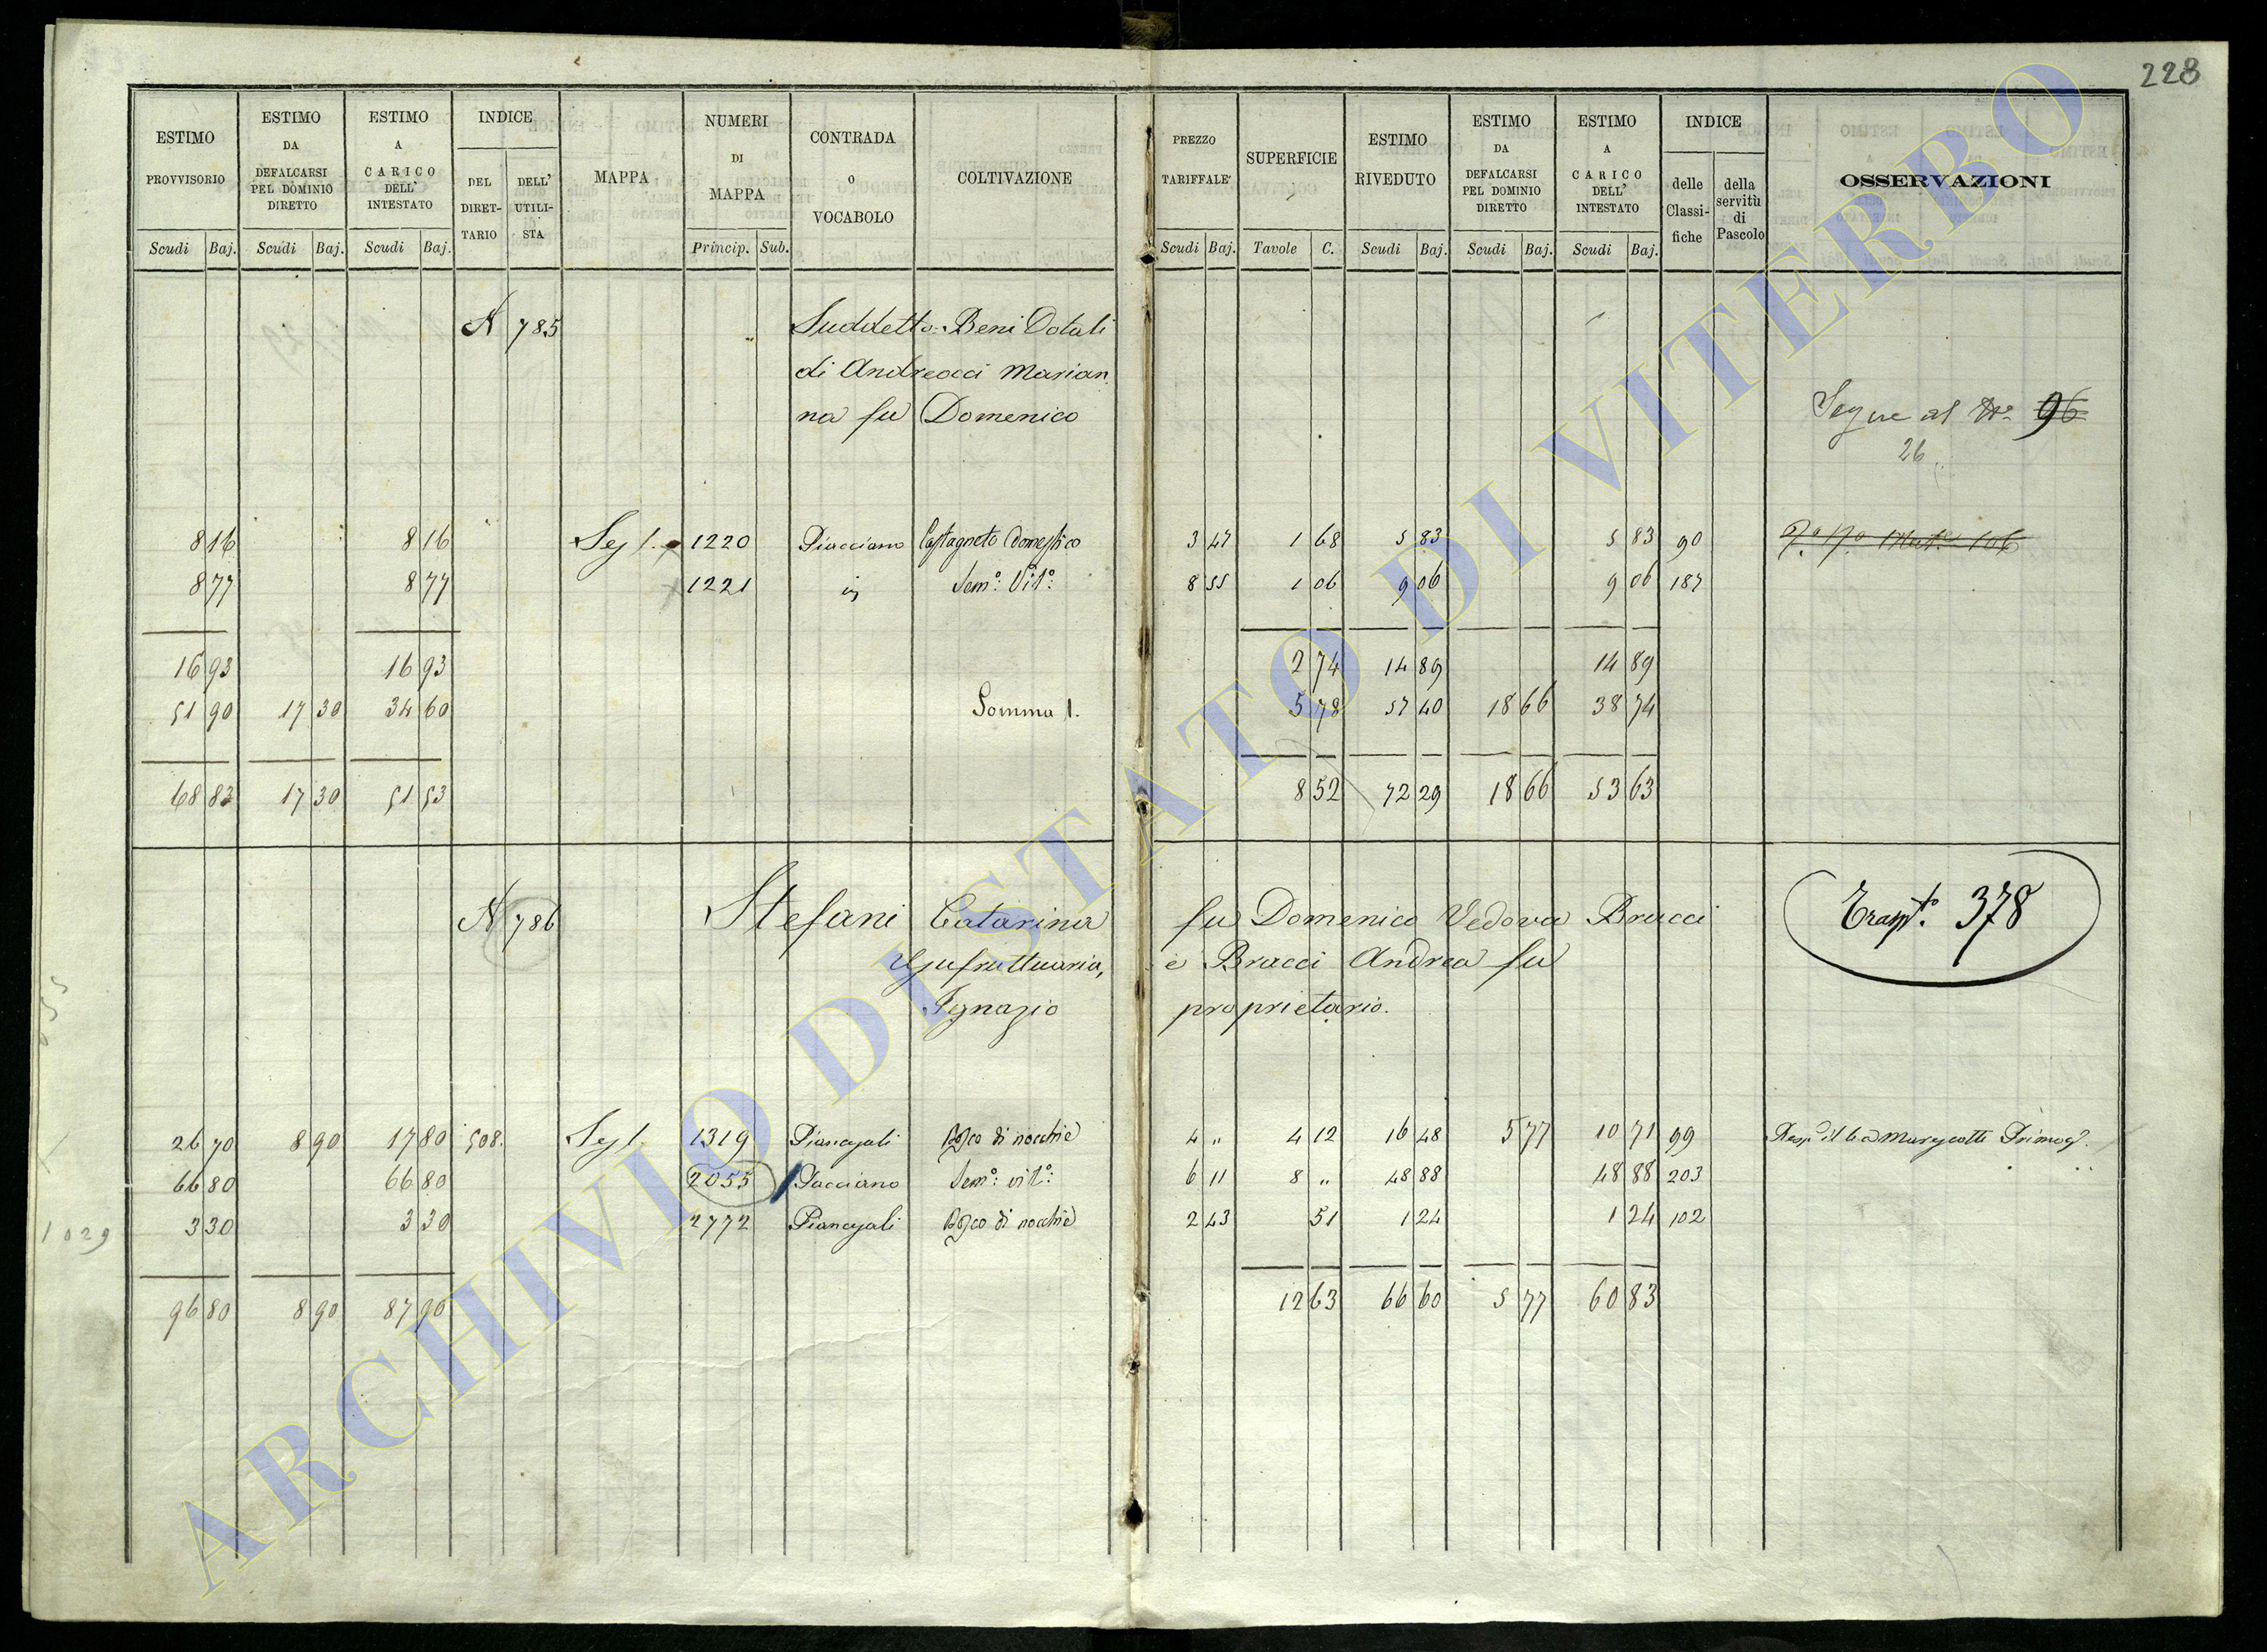 228
ESTIMO PROVVISORIO Scudi Baj.
ESTIMO DA DEFALCARSI PEL DOMINIO DIRETTO Scudi Baj.
ESTIMO A CARICO DELL' INTESTATO Scudi Baj.
INDICE DEL DIRETTARIO DELL' UTILISTA
MAPPA
NUMERI DI MAPPA Princip. Sub.
CONTRADA O VOCABOLO
COLTIVAZIONE
PREZZO TARIFFALE Scudi Baj.
SUPERFICIE Tavole C.
ESTIMO RIVEDUTO Scudi Baj.
ESTIMO DA DEFALCARSI PEL DOMINIO DIRETTO Scudi Baj.
ESTIMO A CARICO DELL' INTESTATO Scudi Baj.
INDICE delle Classifiche della servitù di Pascolo
OSSERVAZIONI
N 785 Suddetto: Beni Dotali
di Andreocci Marian
na fu Domenico
Segue al N° 96
26
8 16 8 16 Sez 1. 1220 Piacciano Castagneto Domestico 3 47 1 68 5 83 5 83 90
8 77 8 77 1221 Sem°: Vit°: 8 55 1 06 9 06 9 06 187
16 93 16 93 2 74 14 89 14 89
51 90 17 30 34 60 Somma 1. 5 78 57 40 18 66 38 74
68 83 17 30 51 53 8 52 72 29 18 66 53 63
N 786 Stefani Catarina fu Domenico Vedova Bracci
Usufruttuaria, e Bracci Andrea fu
Ignazio proprietario.
Trasp.to 378
26 70 8 90 17 80 508. Sez 1. 1319 Piancajali Bosco di nocchie 4 " 4 12 16 48 5 77 10 71 99
66 80 66 80 2055 Pacciano Sem°: vit°: 6 11 8 " 48 88 48 88 203
3 30 3 30 2772 Piancajali Bosco di nocchie 2 43 51 1 24 1 24 102
96 80 8 90 87 90 12 63 66 60 5 77 60 83
1029
ARCHIVIO DI STATO DI VITERBO